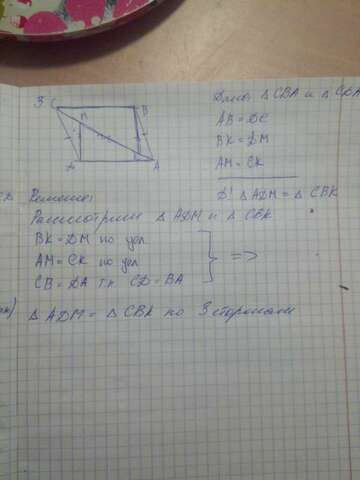 3
C
M
B
K
A
Дано: △CBA и △CDA
AB = DC
BK = DM
AM = CK
Д! △ADM = △CBK
Решение:
Рассмотрим △ADM и △CBK
BK = DM по усл
AM = CK по усл
CB = DA т.к CD = BA
=>
△ADM = △CBK по 3 сторонам